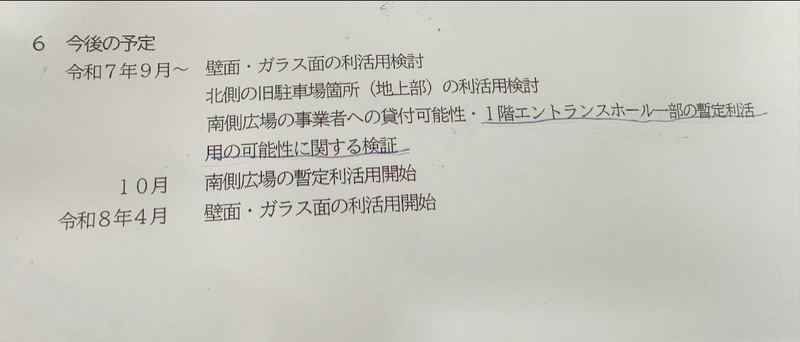 ６　今後の予定
令和７年９月～　壁面・ガラス面の利活用検討
北側の旧駐車場箇所（地上部）の利活用検討
南側広場の事業者への貸付可能性・１階エントランスホール一部の暫定利活
用の可能性に関する検証
１０月　南側広場の暫定利活用開始
令和８年４月　壁面・ガラス面の利活用開始